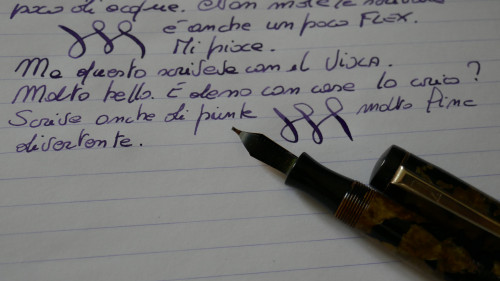 poco di acqua. Non male le
è anche un poco FLEX.
Mi piace.
Ma questo scrisese con el VISCA.
Molto bello. E demo con cose lo
Scrive anche di punte molto fine
divertente.